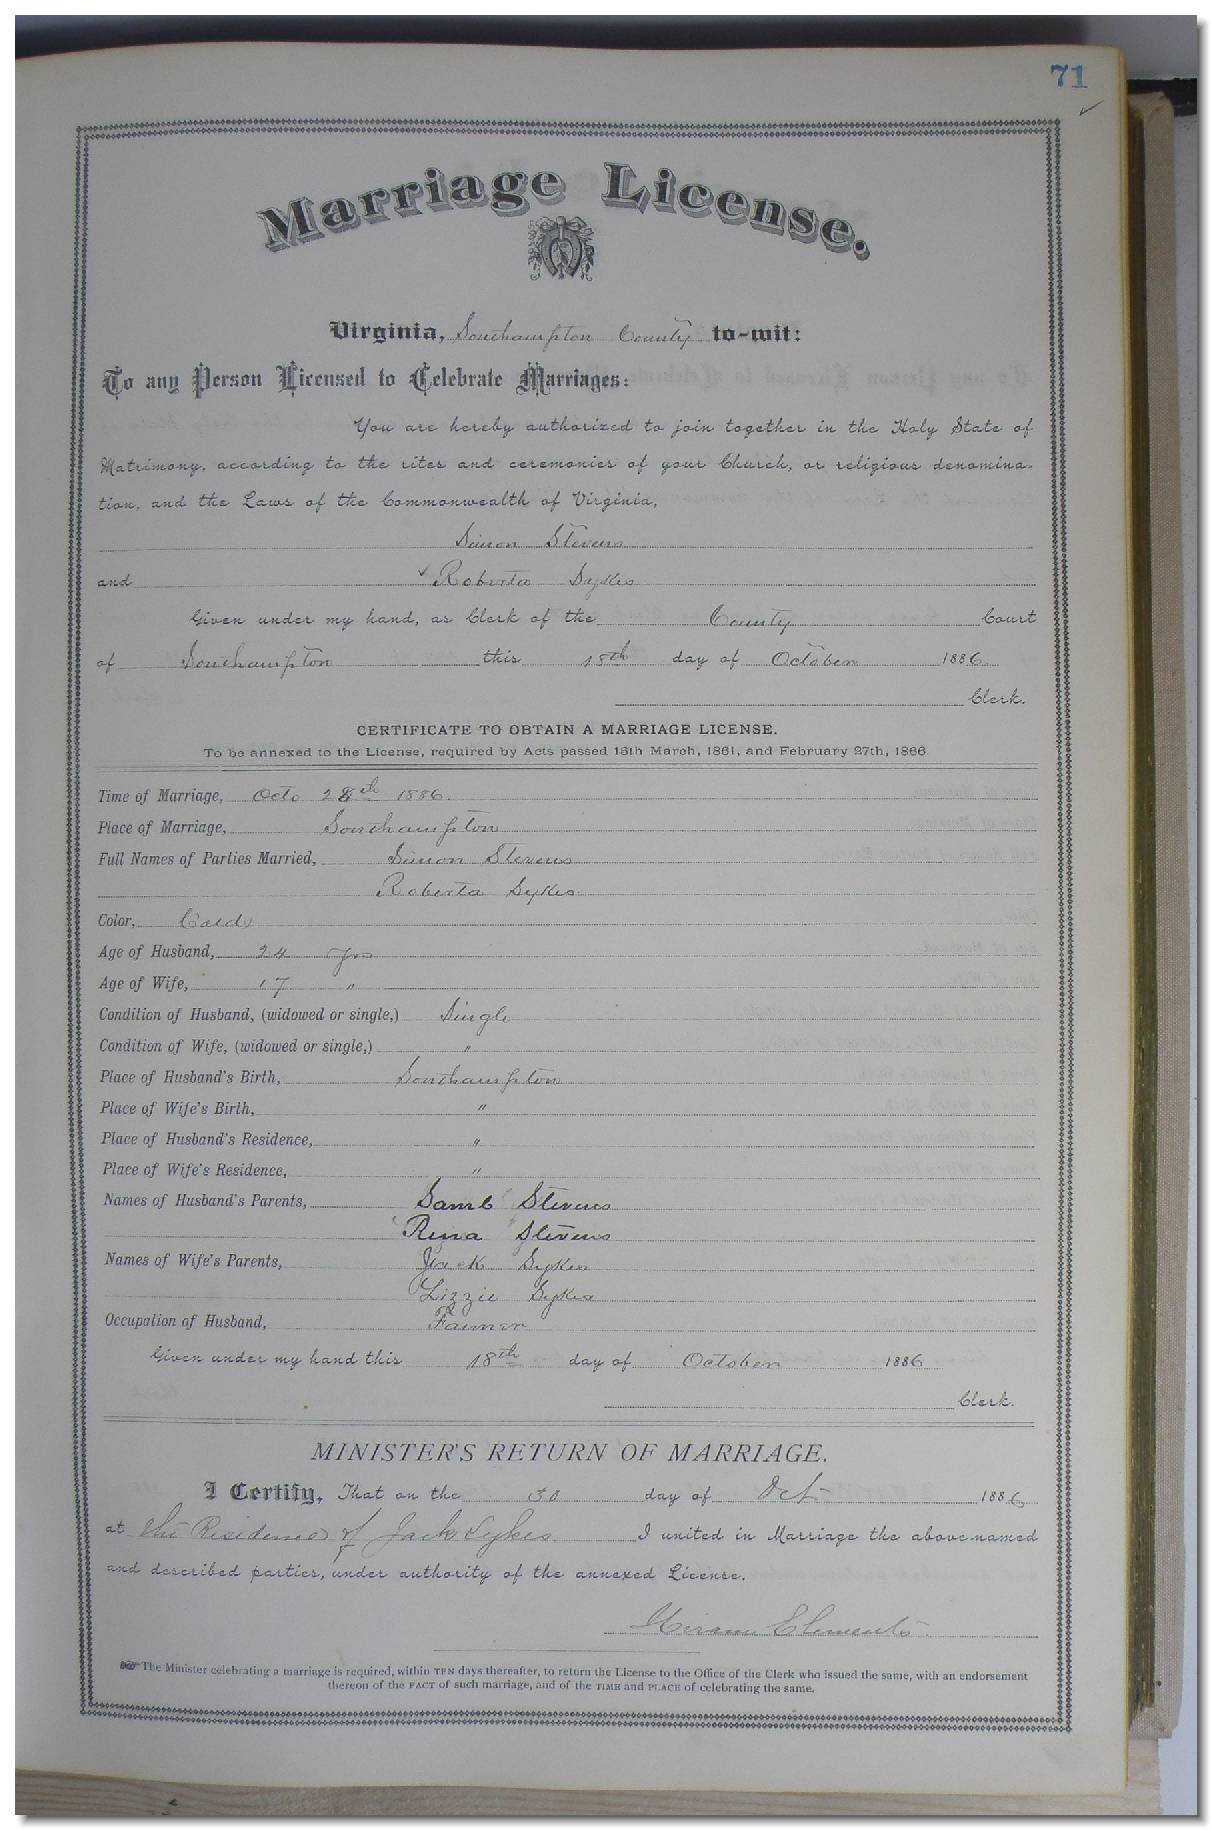 71
Marriage License.
Virginia, Southampton County to-wit:
To any Person Licensed to Celebrate Marriages:
You are hereby authorized to join together in the Holy State of
Matrimony, according to the rites and ceremonies of your Church, or religious denomina-
tion, and the Laws of the Commonwealth of Virginia,
Simon Stevens
and Roberta Sykes
Given under my hand, as Clerk of the County Court
of Southampton this 18th day of October 1886
Clerk.
CERTIFICATE TO OBTAIN A MARRIAGE LICENSE.
To be annexed to the License, required by Acts passed 16th March, 1861, and February 27th, 1866.
Time of Marriage, Octo 28th 1886.
Place of Marriage, Southampton
Full Names of Parties Married, Simon Stevens
Roberta Sykes
Color, Cold
Age of Husband, 24 yrs
Age of Wife, 17 "
Condition of Husband, (widowed or single,) Single
Condition of Wife, (widowed or single,) "
Place of Husband's Birth, Southampton
Place of Wife's Birth, "
Place of Husband's Residence, "
Place of Wife's Residence, "
Names of Husband's Parents, Stevens
Rina Stevens
Names of Wife's Parents, Jack Sykes
Lizzie Sykes
Occupation of Husband, Farmer
Given under my hand this 18th day of October 1886
Clerk.
MINISTER'S RETURN OF MARRIAGE.
I Certify, That on the 30 day of Oct 1886
at the Residence of Jack Sykes I united in Marriage the above-named
and described parties, under authority of the annexed License.
Hiram Clements
The Minister celebrating a marriage is required, within TEN days thereafter, to return the License to the Office of the Clerk who issued the same, with an endorsement
thereon of the FACT of such marriage, and of the TIME and PLACE of celebrating the same.